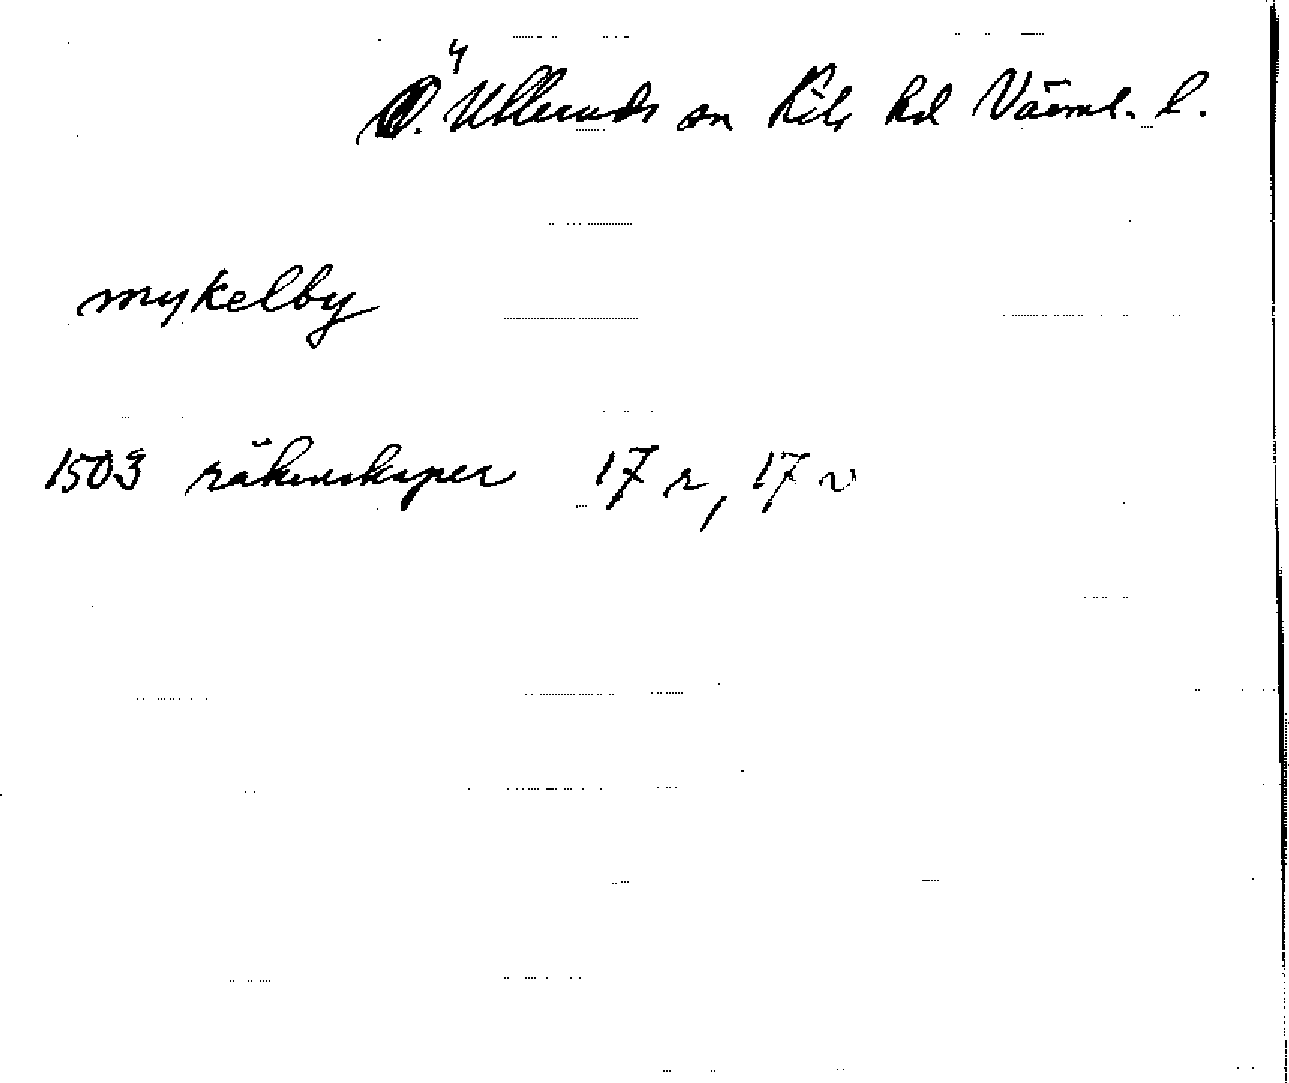 4
Ö. Ulleruds sn Kils hd Värml. l.
mykelby
1503 räkenskaper 17 r, 17 v